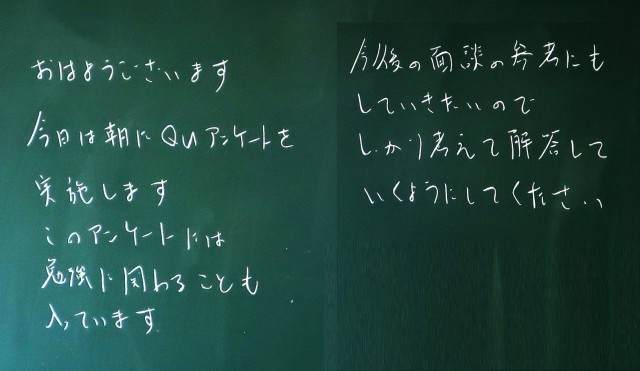 おはようございます
今日は朝にQUアンケートを
実施します
このアンケートには
勉強に関わることも
入っています
今後の面談の参考にも
していきたいので
しっかり考えて解答して
いくようにしてください